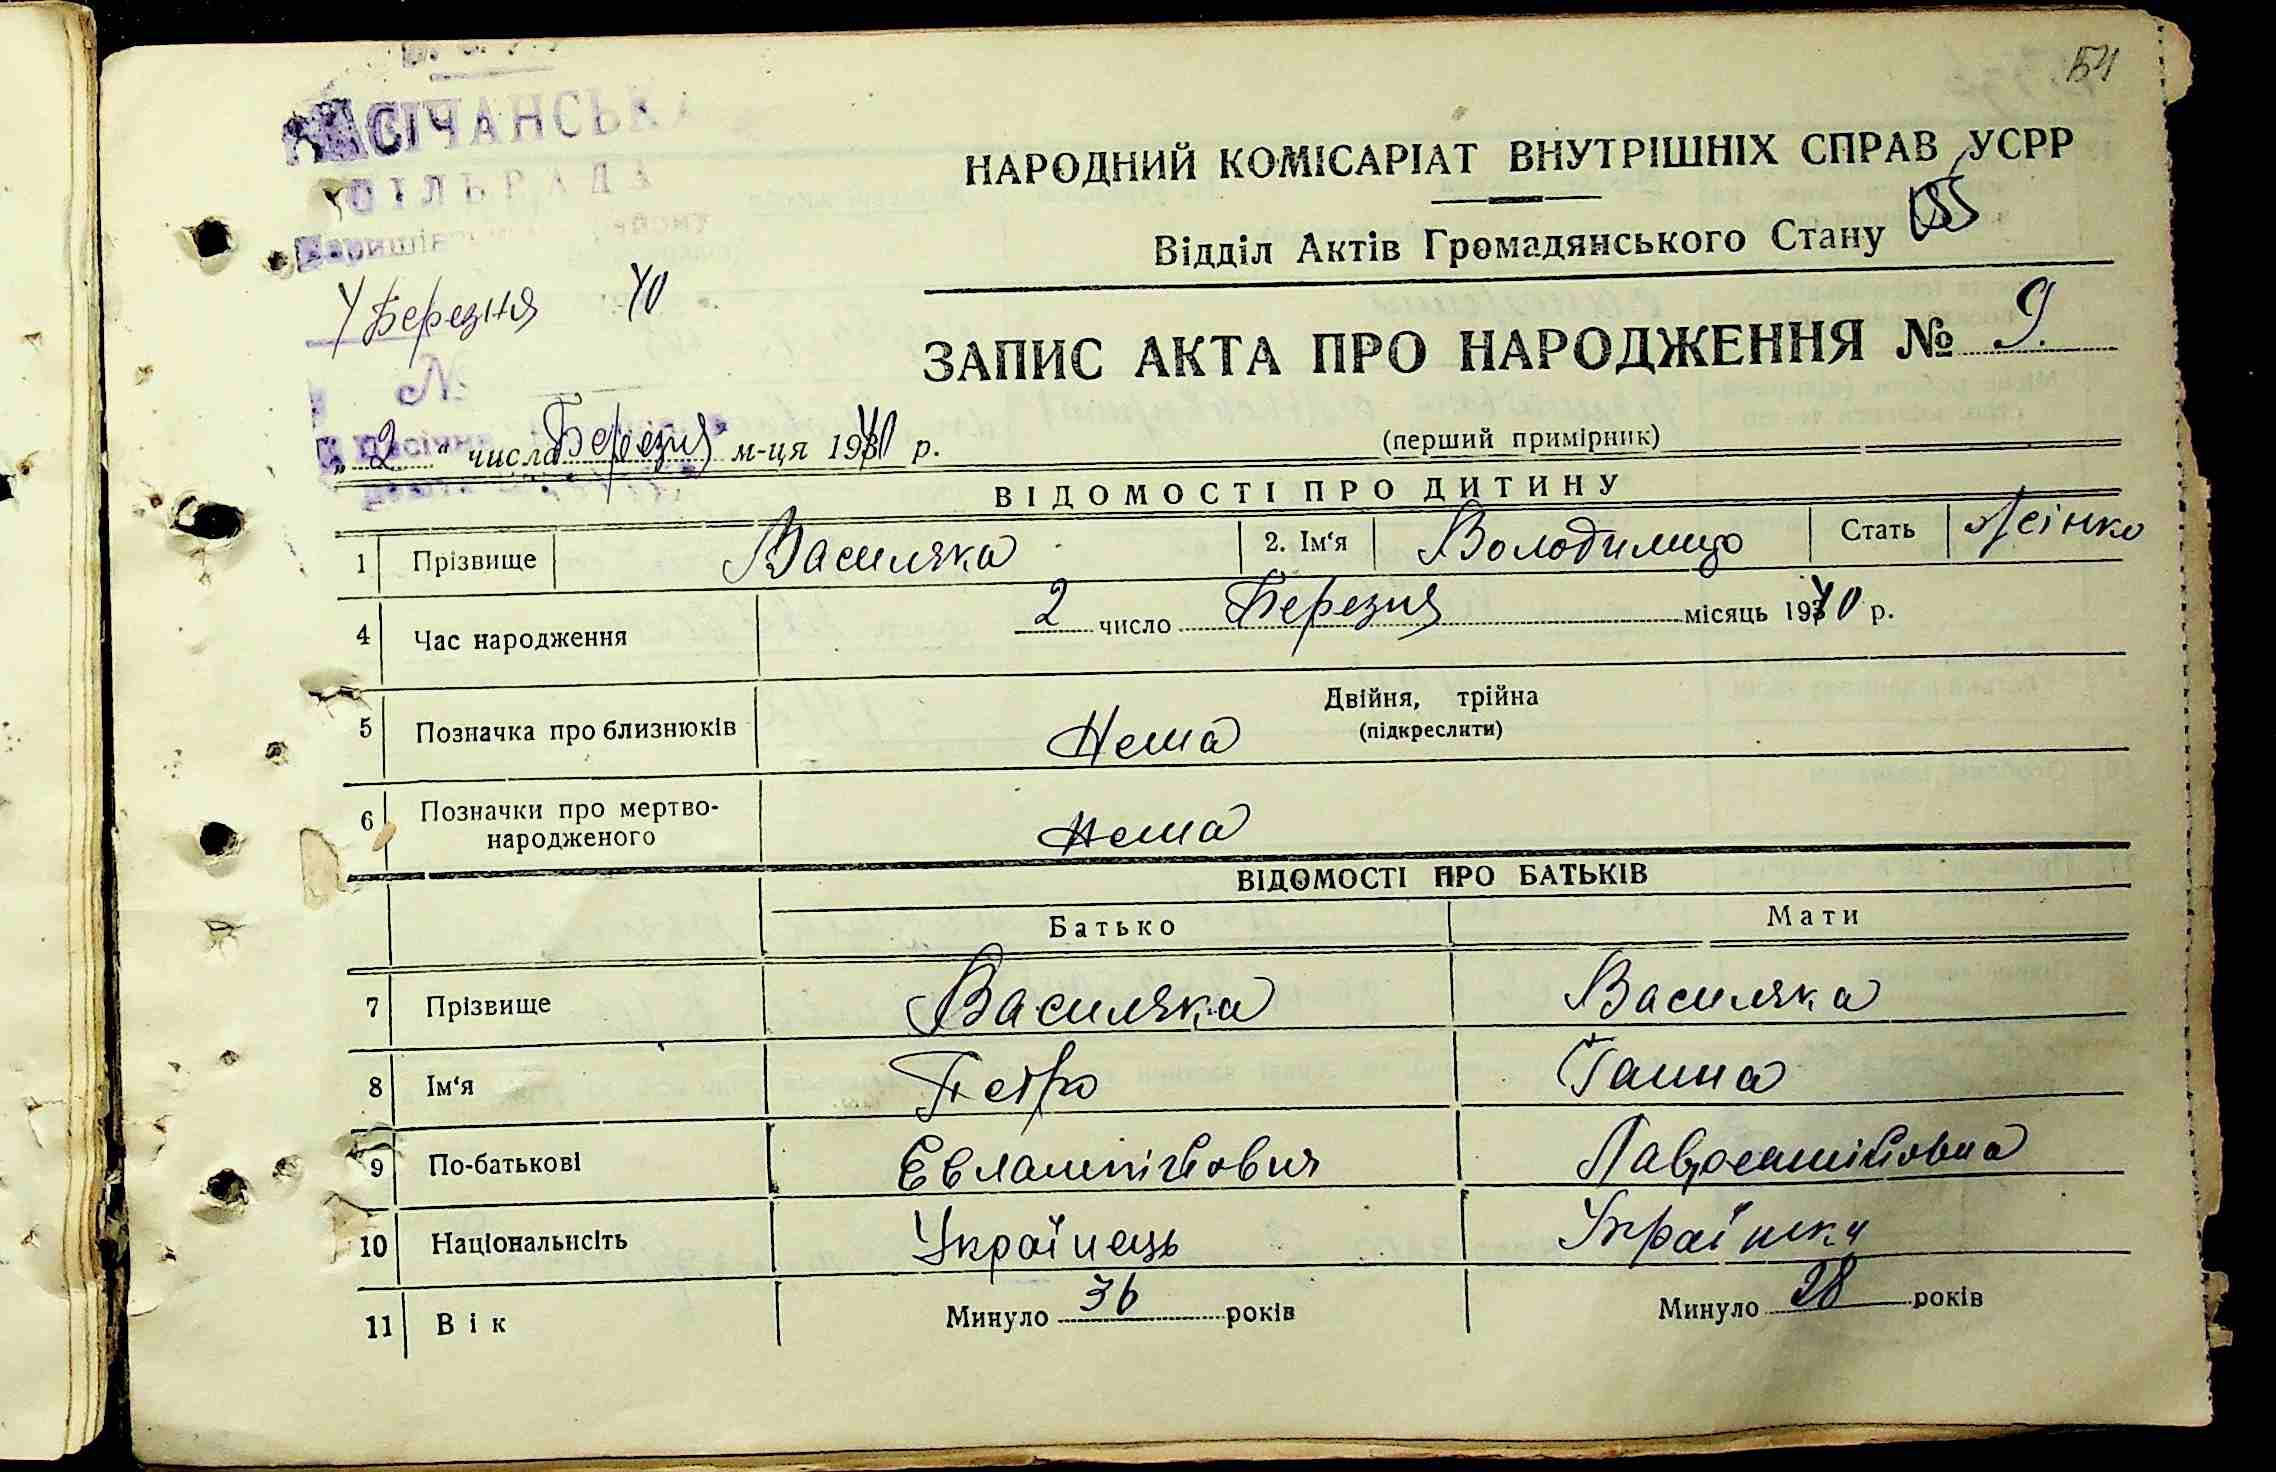 СІЧАНСЬКА
СІЛЬРАДА
4 Березня 40
№
154
НАРОДНИЙ КОМІСАРІАТ ВНУТРІШНІХ СПРАВ УСРР
155
Відділ Актів Громадянського Стану
ЗАПИС АКТА ПРО НАРОДЖЕННЯ № 9.
„2“ числа Березня м-ця 1940 р.
(перший примірник)
ВІДОМОСТІ ПРО ДИТИНУ
1 Прізвище Василяка 2. Ім‘я Володимир Стать
4 Час народження 2 число Березня місяць 1940 р.
5 Позначка про близнюків Нема Двійня, трійна
(підкреслити)
6 Позначки про мертво-
народженого Нема
ВІДОМОСТІ ПРО БАТЬКІВ
Батько Мати
7 Прізвище Василяка Василяка
8 Ім‘я Петро Ганна
9 По-батькові
10 Національнсіть Українець Українка
11 Вік Минуло 36 років Минуло 28 років